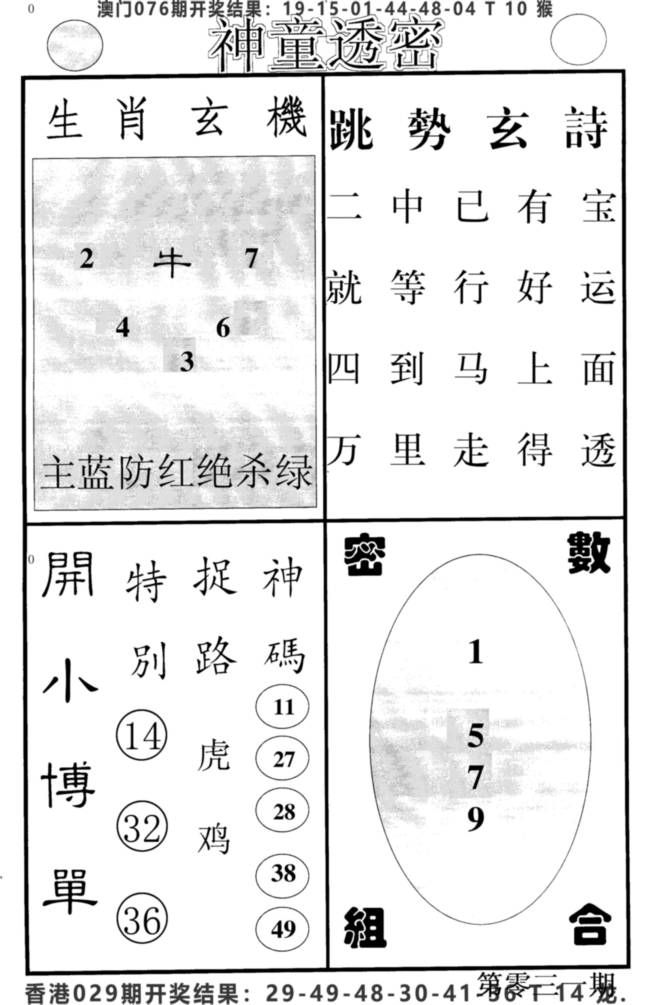 0
澳门076期开奖结果：19-15-01-44-48-04 T 10 猴
神童透密
生肖玄機
2 牛 7
4 6
3
主蓝防红绝杀绿
跳勢玄詩
二中已有宝
就等行好运
四到马上面
万里走得透
0
開小博單
特別
14
32
36
捉路
虎
鸡
神碼
11
27
28
38
49
密數
1
5
7
9
組合
香港029期开奖结果：29-49-48-30-41-